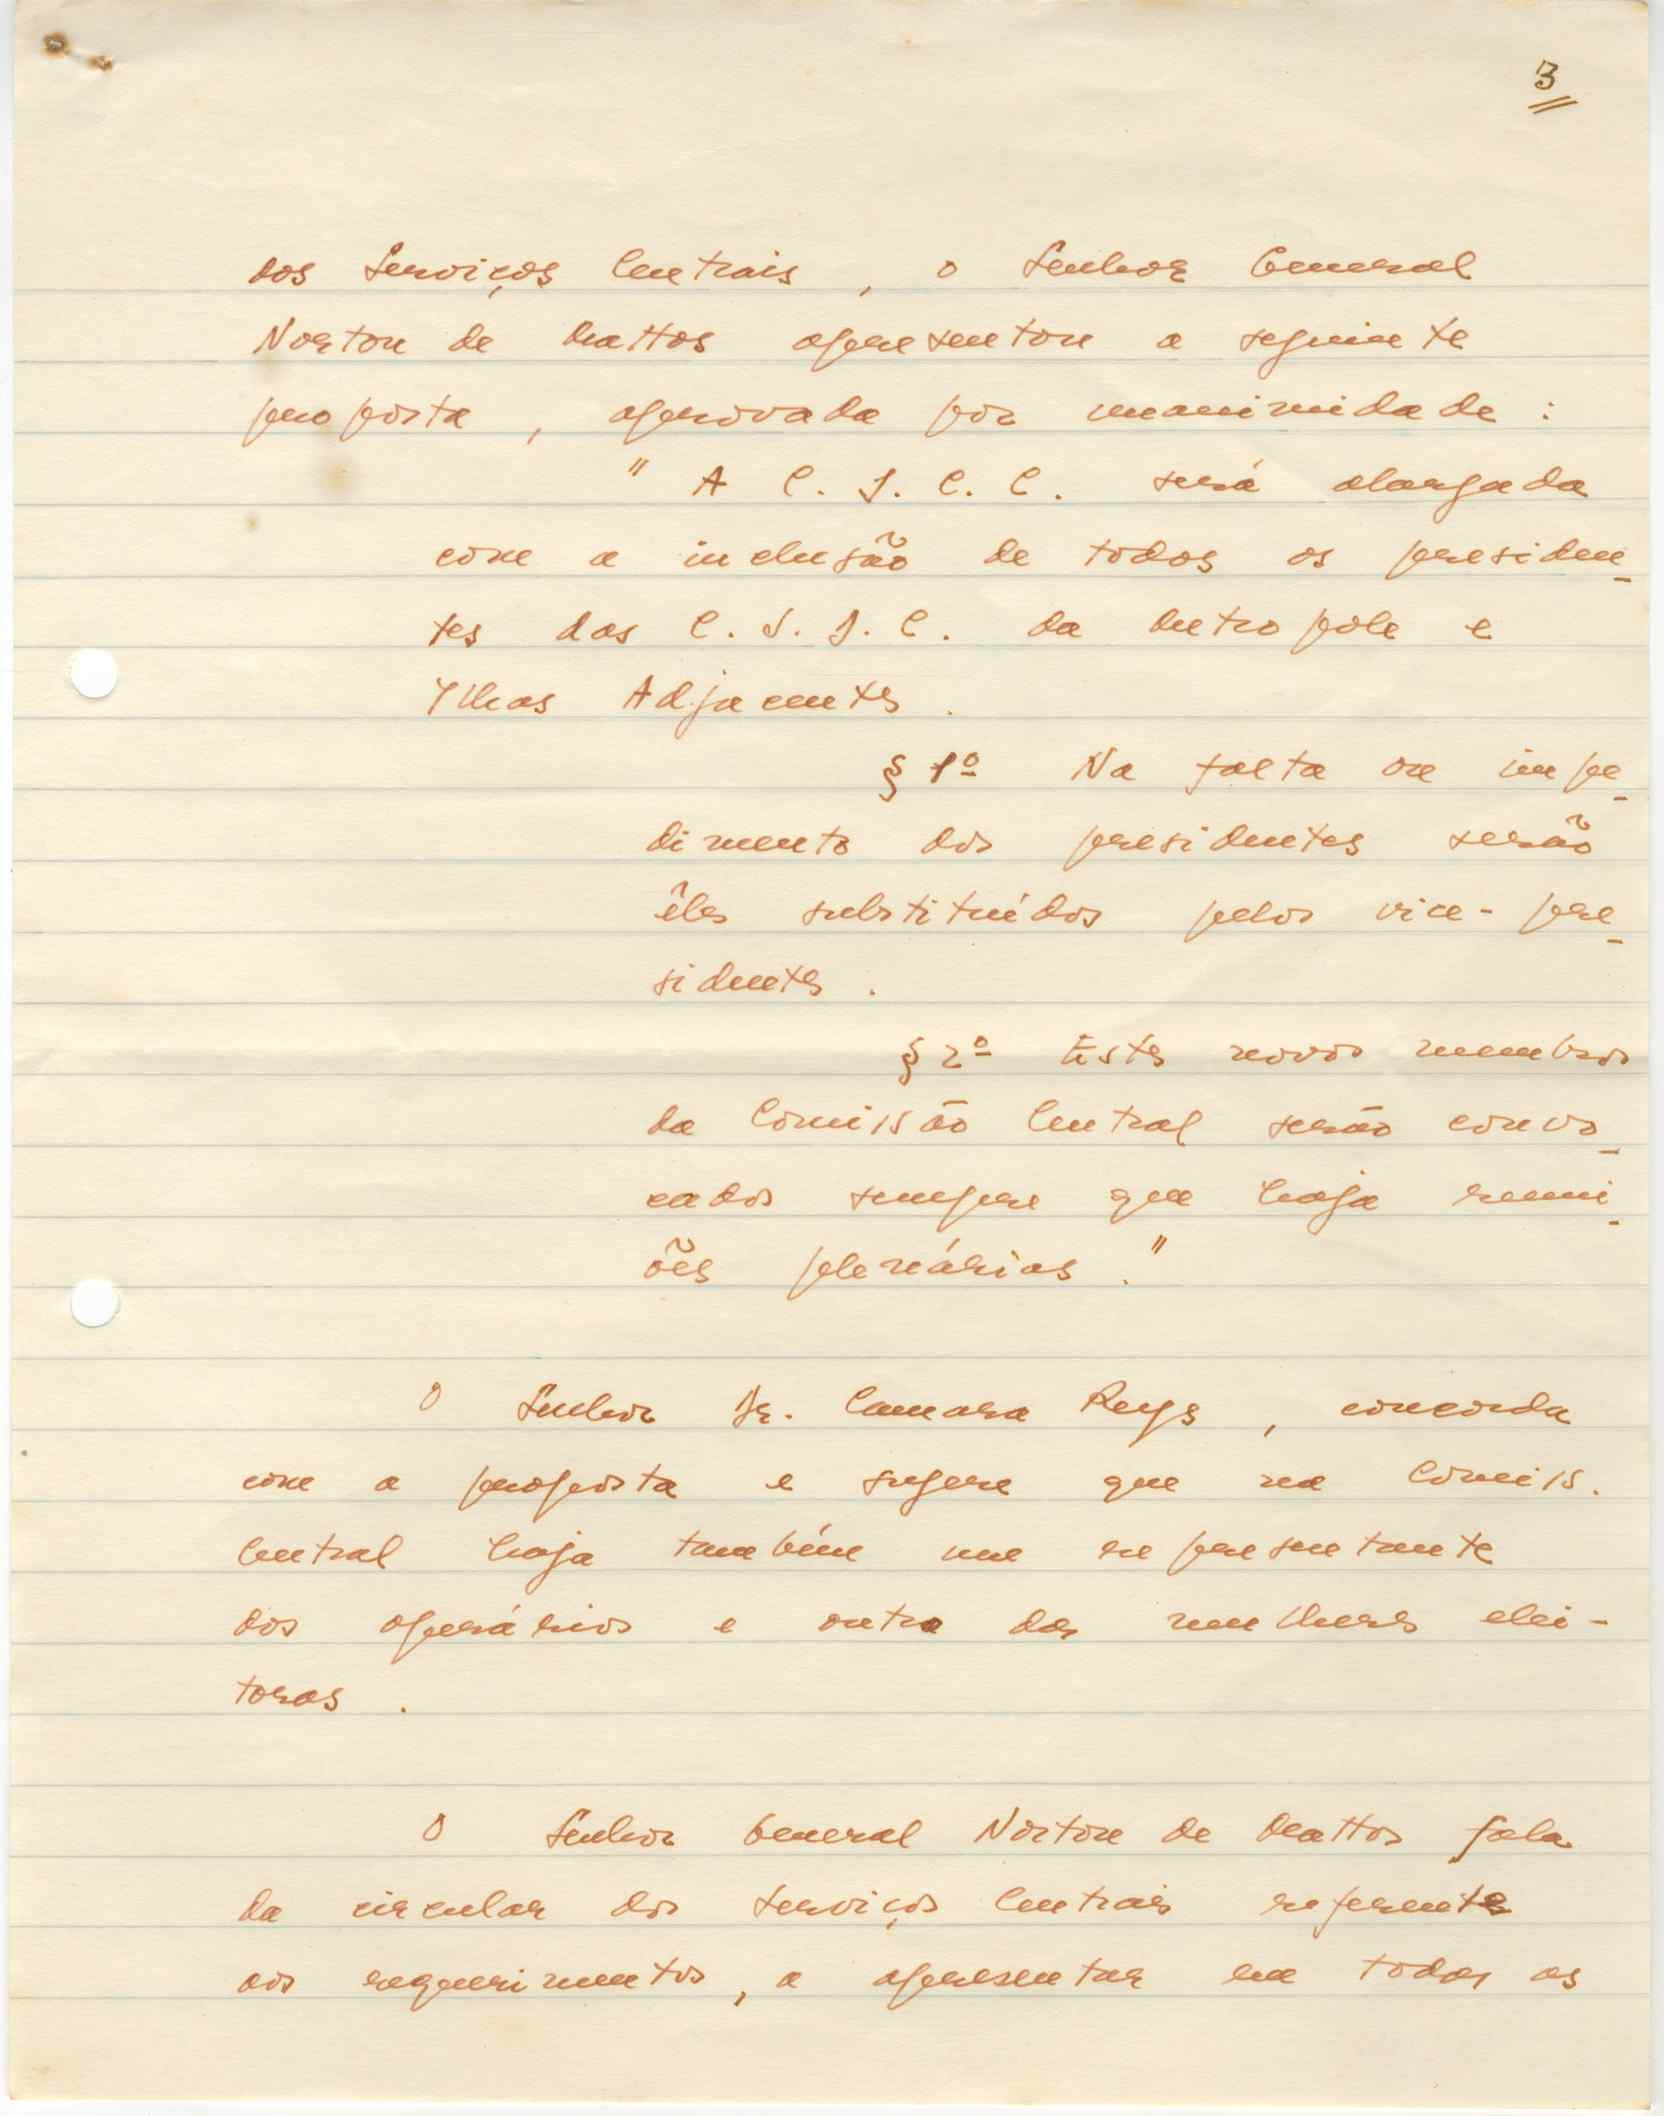 3
dos Serviços Centrais, o Senhor General
Norton de Mattos apresentou a seguinte
proposta, aprovada por unanimidade:
"A C. S. C. C. será alargada
com a inclusão de todos os presiden-
tes das C. S. D. C. da Metropole e
Ilhas Adjacentes.
§ 1º Na falta ou impe-
dimento dos presidentes serão
êles substituídos pelos vice-pre-
sidentes.
§ 2º Estes novos membros
da Comissão Central serão convo-
cados sempre que haja reuni-
ões plenárias."
O Senhor Dr. Camara Reys, concorda
com a proposta e sugere que na Comiss.
Central haja também um representante
dos operários e outro das mulheres elei-
toras.
O Senhor General Norton de Mattos fala
da circular dos Serviços Centrais referente
aos requerimentos, a apresentar em todos os